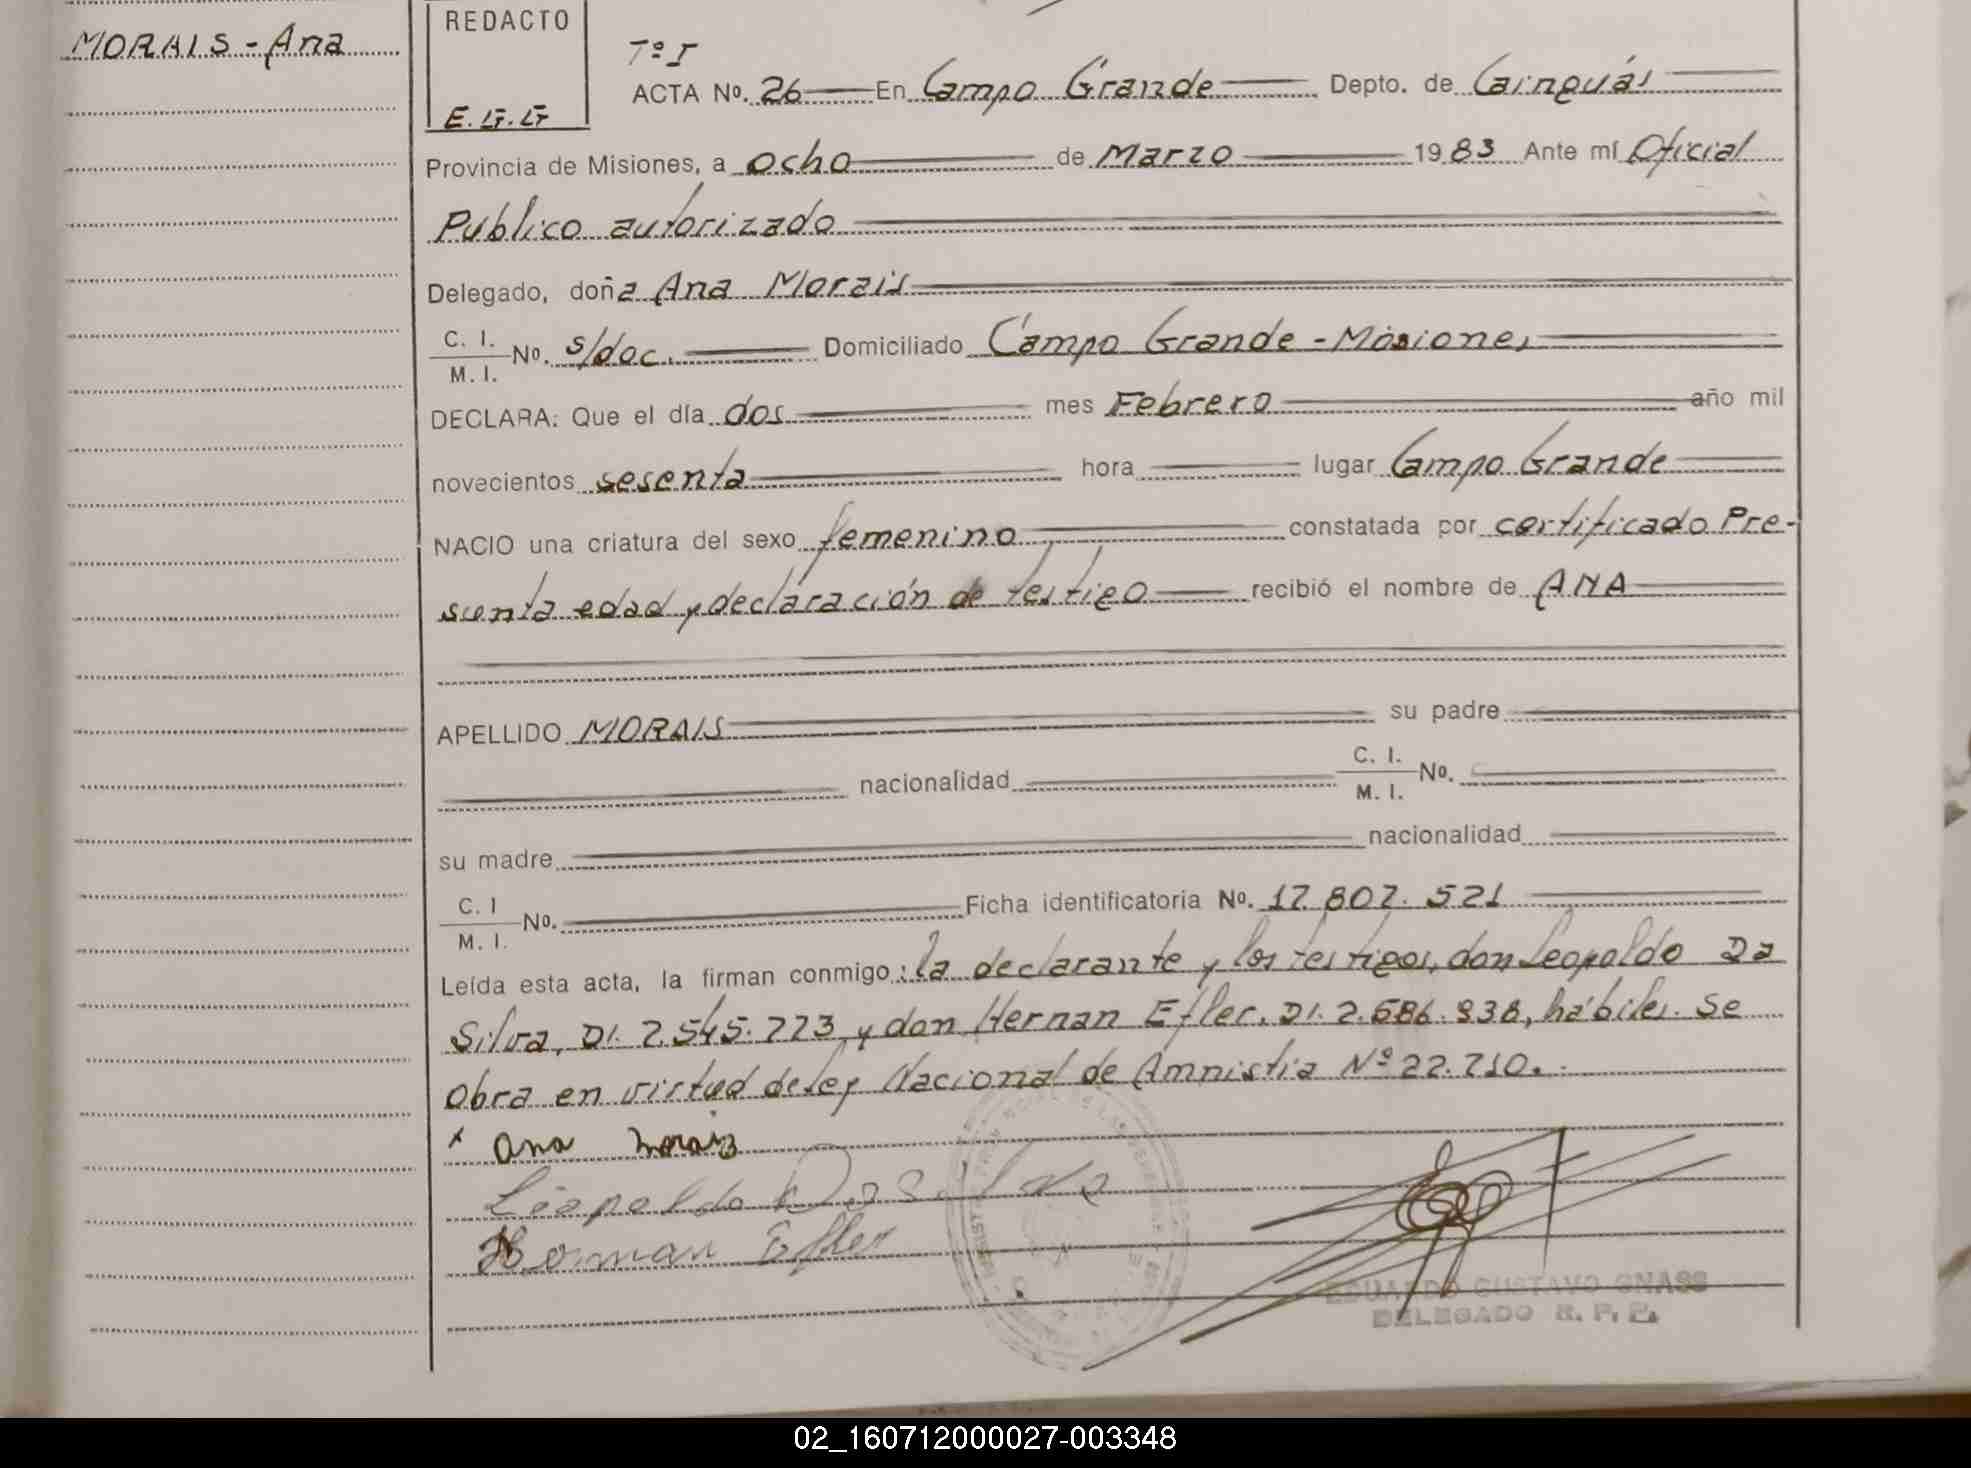 MORAIS - Ana
REDACTO
E. G. G
Tº I
ACTA Nº. 26 En Campo Grande Depto. de Cainguás
Provincia de Misiones, a ocho de Marzo 1983 Ante mí Oficial
Publico autorizado
Delegado, doña Ana Morais
C. I.
M. I. Nº. s/doc. Domiciliado Campo Grande - Misiones
DECLARA: Que el día dos mes Febrero año mil
novecientos sesenta hora lugar Campo Grande
NACIO una criatura del sexo femenino constatada por certificado Pre-
sunta edad y declaración de testigo recibió el nombre de ANA
APELLIDO MORAIS su padre
nacionalidad C. I.
M. I. Nº.
su madre nacionalidad
C. I
M. I. Nº. Ficha identificatoria Nº. 17.807.521
Leída esta acta, la firman conmigo: la declarante y los testigos, don Leopoldo Da
Silva, DI. 7.545.773 y don Hernan Efler, DI. 2.686.938, hábiles. Se
Obra en virtud de ley Nacional de Amnistia Nº 22.710.
x Ana Morais
Leopoldo Da Silva
Herman Efler
EDUARDO GUSTAVO GNASS
DELEGADO R. P. P.
02_160712000027-003348